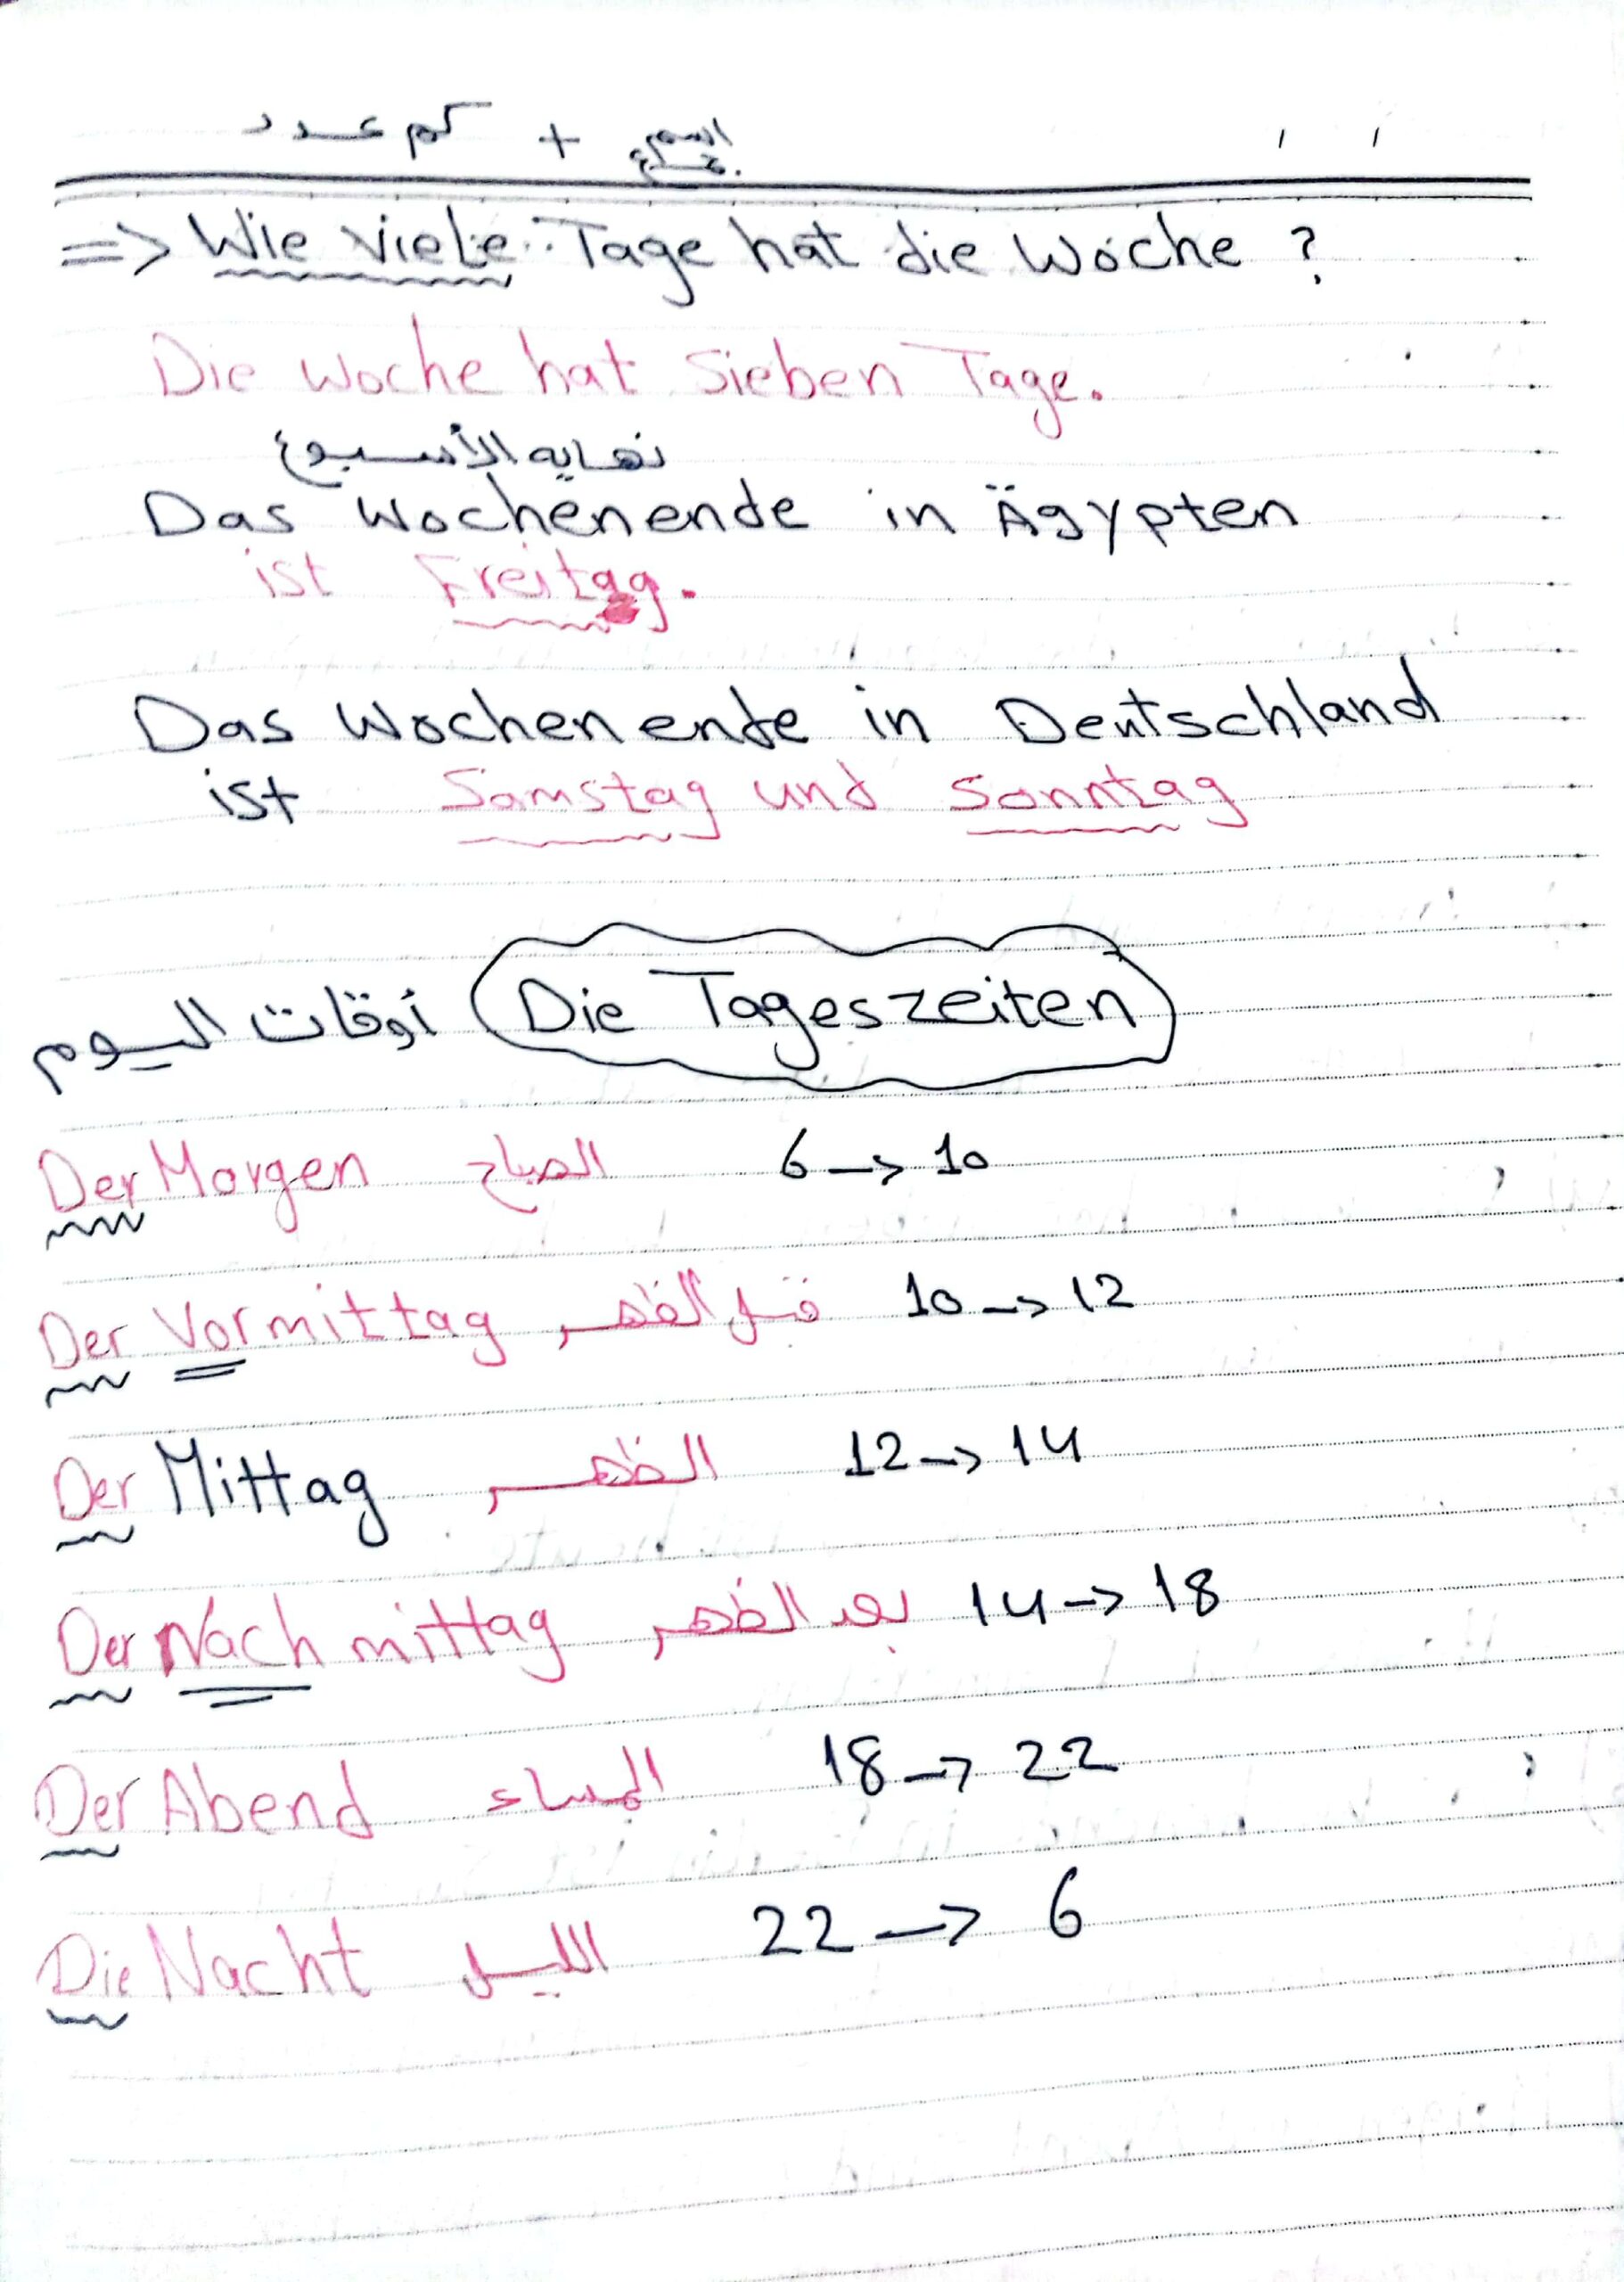 كم عدد + اسم جمع
=> Wie viele Tage hat die Woche ?
Die Woche hat Sieben Tage.
نهاية الأسبوع
Das Wochenende in Ägypten
ist Freitag.
Das Wochenende in Deutschland
ist Samstag und Sonntag
Die Tageszeiten أوقات اليوم
Der Morgen الصباح 6 -> 10
Der Vormittag قبل الظهر 10 -> 12
Der Mittag الظهر 12 -> 14
Der Nachmittag بعد الظهر 14 -> 18
Der Abend المساء 18 -> 22
Die Nacht الليل 22 -> 6